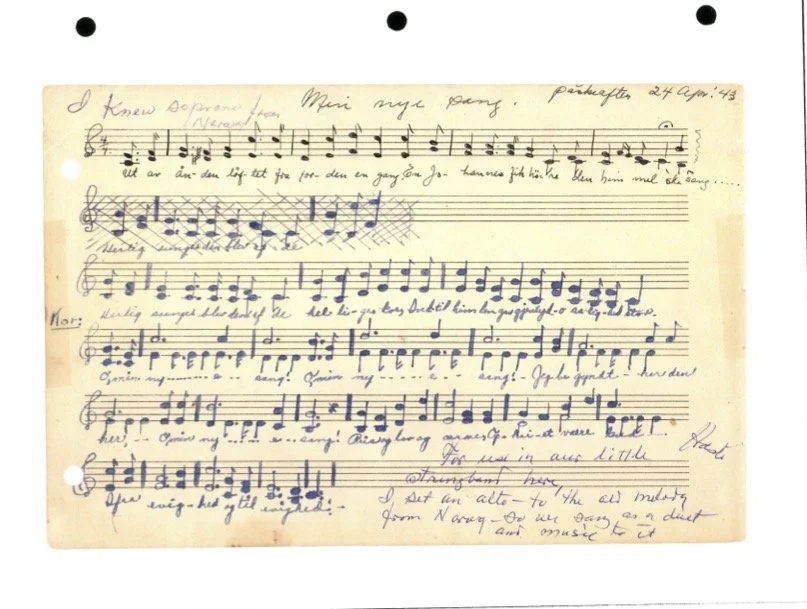 I Knew soprano from
Min nye sang.
påskeaften 24 Apr. '43
Ut av ån-den løf-tet fra jor-den en gang En Jo- hannes fik hø-re den him mel ske sang.....
Herlig sunget den blev af de
Herlig sunget blev den af de hel-li-ges kor, Indtil him len gjen-lyd-
Kor:
O min ny e sang! O min ny e sang! Jeg be gyndt her den
her, O min ny e sang! Pris og lov og Gu
For use in our little
stringband here
I set an alto - to the old melody
from Norway - So we sang as a duet
and music to it
fra evig-hed og til evighed!